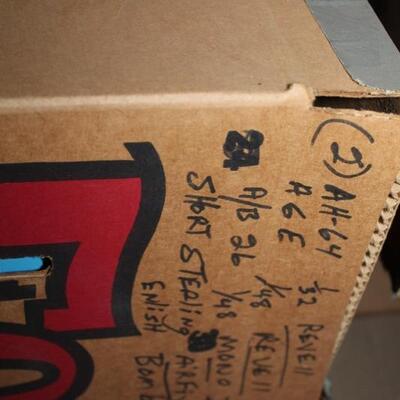 (2) AH-64 1/32 REVEll
A6E 1/48 REVEll
A/B 26 1/48 MONO
SHORT STERLING AIRFI
ENlISH BOMb